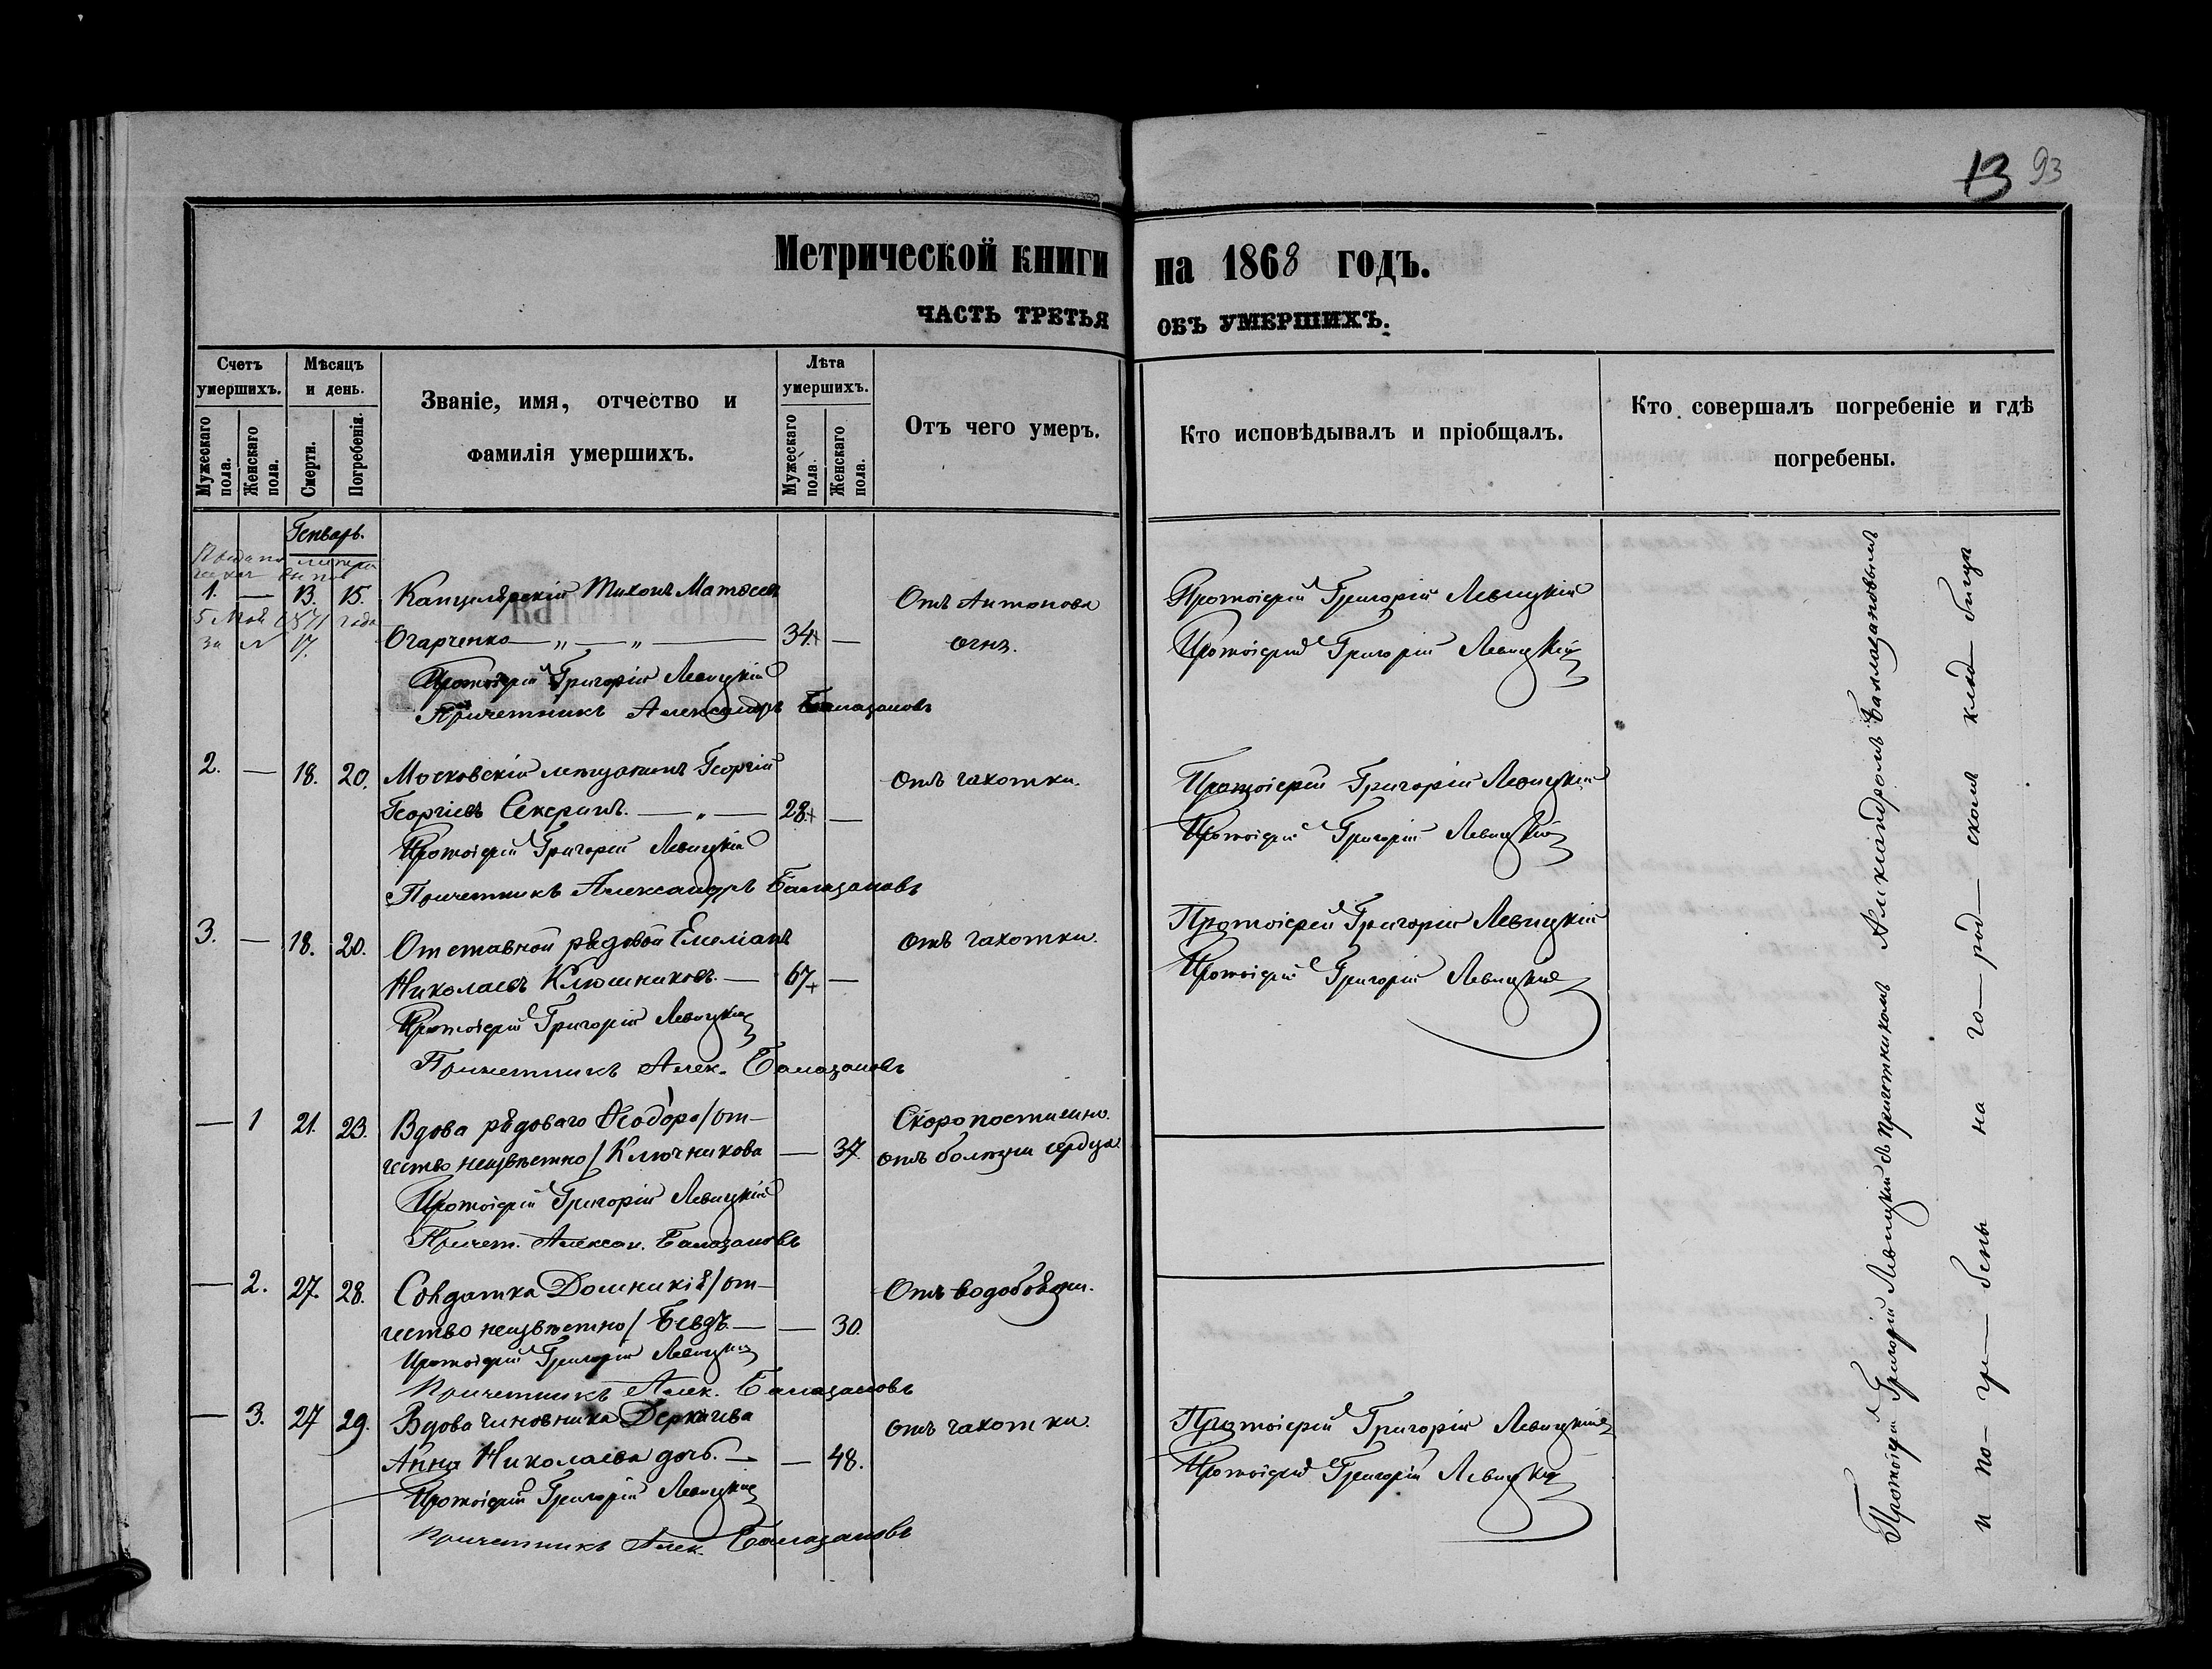 13 93
Метрической книги на 1868 годъ.
ЧАСТЬ ТРЕТЬЯ ОБЪ УМЕРШИХЪ.
Счетъ умершихъ.
Мужескаго пола.
Женскаго пола.
Мѣсяцъ и день.
Смерти.
Погребенія.
Званіе, имя, отчество и
фамилія умершихъ.
Лѣта умершихъ.
Мужескаго пола.
Женскаго пола.
Отъ чего умеръ.
Кто исповѣдывалъ и пріобщалъ.
Кто совершалъ погребеніе и гдѣ
погребены.
Генварь.
1. — 13. 15. Канцелярскій Тихонъ Матвеевъ Отъ Антонова Протоіерей Григорій Левицкій
5 Мая 1871 года
за № 17.
Огарченко — „ — „ — 34. — огня. Протоіерей Григорій Левицкій
Протоіерей Григорій Левицкій
Причетникъ Александръ Балабановъ
2. — 18. 20. Московскій мещанинъ Георгій отъ чахотки. Протоіерей Григорій Левицкій
Георгіевъ Секеринъ. — „ — 28. — Протоіерей Григорій Левицкій
Протоіерей Григорій Левицкій
Причетникъ Александръ Балабановъ
3. — 18. 20. Отставной рядовой Емеліанъ отъ чахотки. Протоіерей Григорій Левицкій
Николаевъ Клюшниковъ. — 67 — Протоіерей Григорій Левицкій
Протоіерей Григорій Левицкій
Причетникъ Алек. Балабановъ
— 1 21. 23. Вдова рядоваго Ѳеодора /от- Скоропостижно.
чество неизвѣстно/ Ключникова — 37. отъ болѣзни сердца
Протоіерей Григорій Левицкій
Причет. Алексан. Балабановъ
— 2. 27. 28. Солдатка Домникія /от- Отъ водобоязни.
чество неизвѣстно/ Бевдъ. — — 30.
Протоіерей Григорій Левицкій
Причетникъ Алек. Балабановъ
— 3. 27 29. Вдова чиновника Деркачева отъ чахотки. Протоіерей Григорій Левицкій
Анна Николаева дочь. — — 48. Протоіерей Григорій Левицкій
Протоіерей Григорій Левицкій
Причетникъ Алек. Балабановъ
Протоіерей Григорій Левицкій съ причетникомъ Александромъ Балабановымъ
и по — гре — бены на го — род — скомъ клад — бищѣ